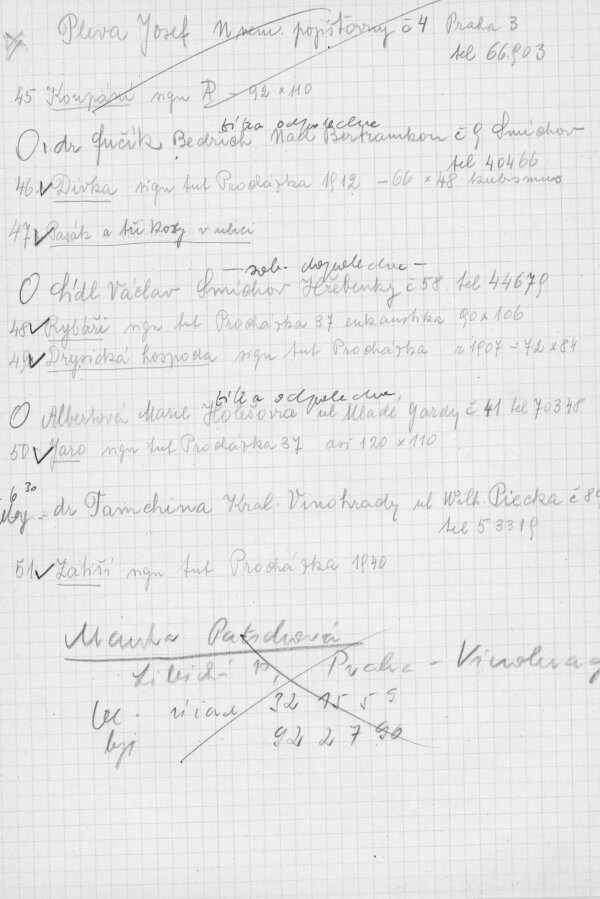 Pleva Josef N nem. popišťovny č 4 Praha 3
tel 66903
45 Koupání sign P - 92 × 110
O, dr Sučik Bedřich Nad Bertramkou č 9 Smíchov
bílá odpoledne
tel 40466
46 Dívka sign tut Procházka 1912 - 66 × 48 kubismus
47 Pasák a tři kozy v ulici
- sob. dopoledne -
O Lídl Václav Smíchov Hřebenky č 58 tel 44679
48 Rybáři sign tut Procházka 37 enkaustika 90 × 106
49 Drysická hospoda sign tut Procházka r 1907 - 72 × 84
odpoledne
O Albertová Marie Holešovice ul Mladé Gardy č 41 tel 70348
50 Jaro sign tut Procházka 37 asi 120 × 110
6 30
dr Tamchina Král. Vinohrady ul Wilh. Piecka č
tel 53319
51 Zátiší sign tut Procházka 1940
Patschová
Libická Praha - Vinohrad
32 15 5 9
byt 92 2 7 90